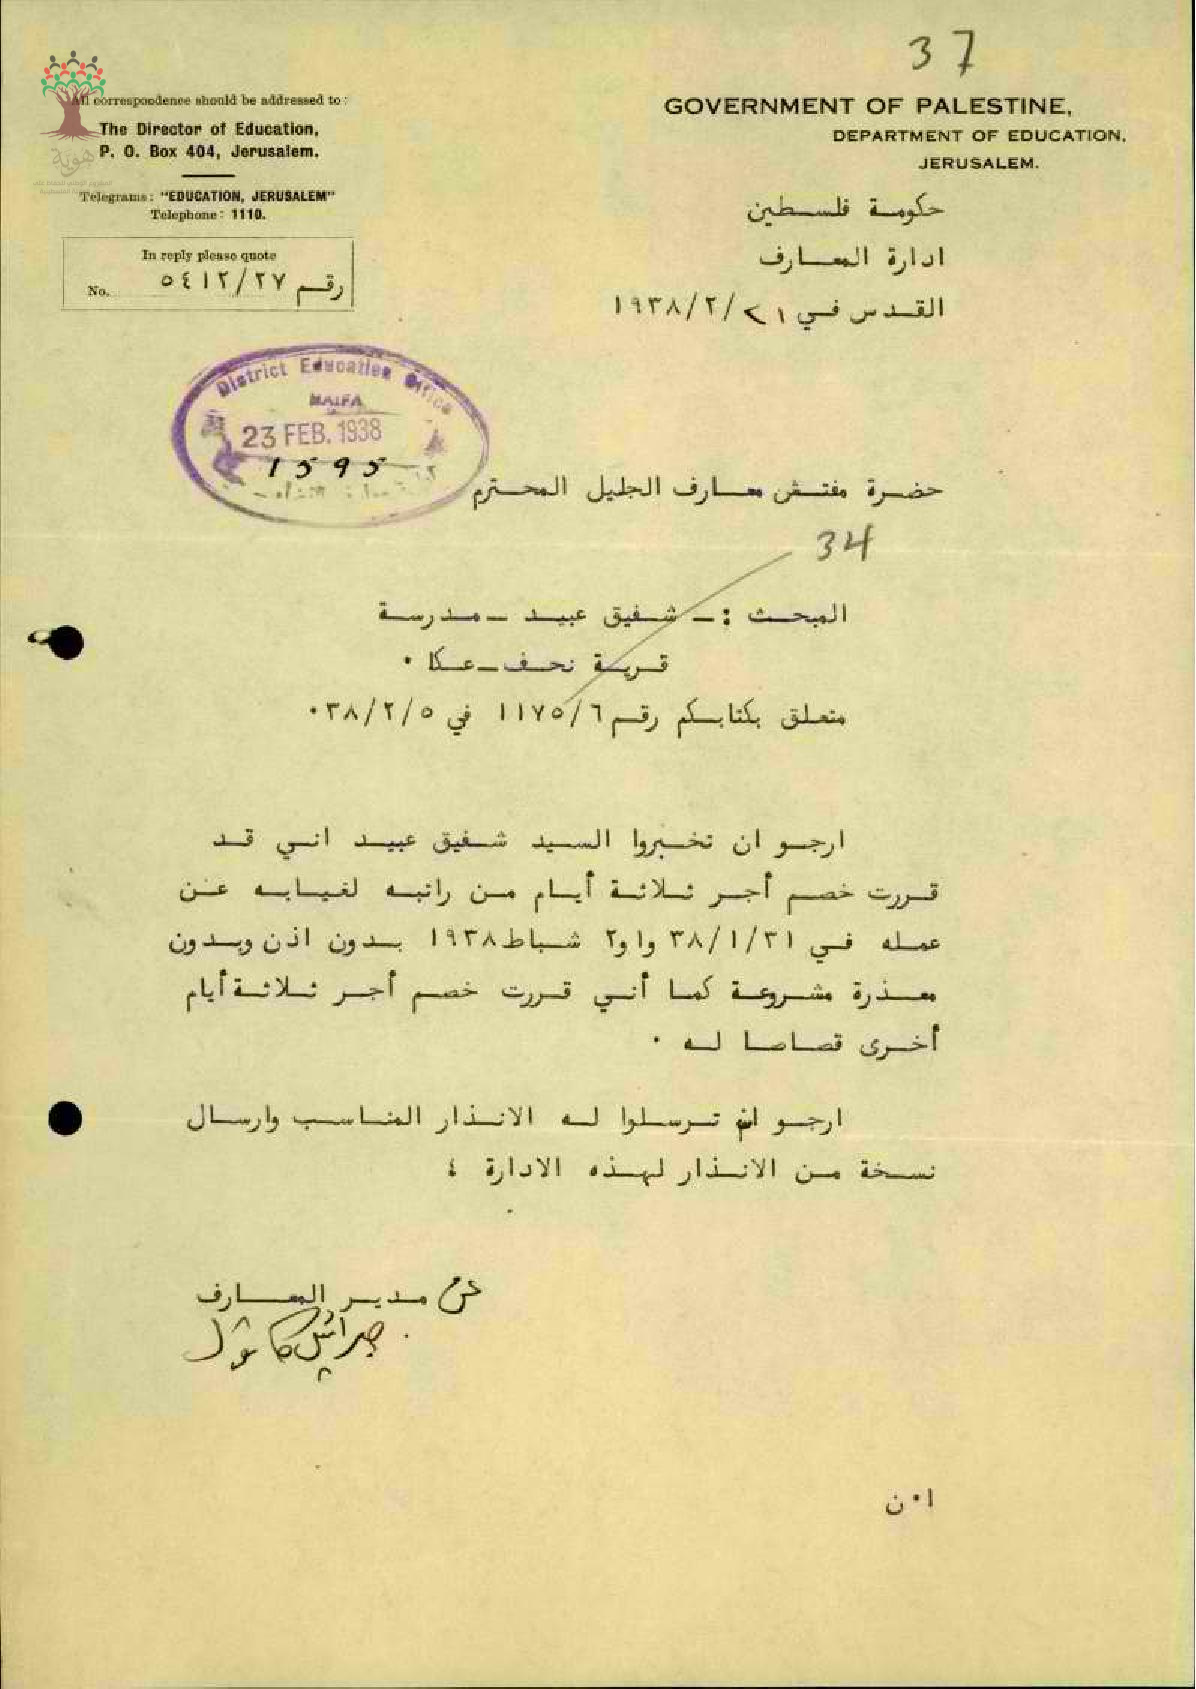 37
All correspondence should be addressed to:
The Director of Education,
P. O. Box 404, Jerusalem.
Telegrams: "EDUCATION, JERUSALEM"
Telephone: 1110.
In reply please quote
No. رقم ٥٤١٢/٢٧
GOVERNMENT OF PALESTINE,
DEPARTMENT OF EDUCATION,
JERUSALEM.
حكومة فلسطين
ادارة المعارف
القدس في ٢١/٢/١٩٣٨
District Education Office
HAIFA
23 FEB. 1938
1595
حضرة مفتش معارف الجليل المحترم
34
المبحث :- شفيق عبيد - مدرسة
قرية نحف - عكا ٠
متعلق بكتابكم رقم ١١٧٥/٦ في ٣٨/٢/٥٠
ارجو ان تخبروا السيد شفيق عبيد اني قد
قررت خصم أجر ثلاثة أيام من راتبه لغيابه عن
عمله في ٣٨/١/٣١ و١ و٢ شباط ١٩٣٨ بدون اذن وبدون
معذرة مشروعة كما أني قررت خصم أجر ثلاثة أيام
أخرى قصاصا له ٠
ارجو ان ترسلوا له الانذار المناسب وارسال
نسخة من الانذار لهذه الادارة ٤
عن مدير المعارف
جبرائيل كاتول
ا٠ن
هوية